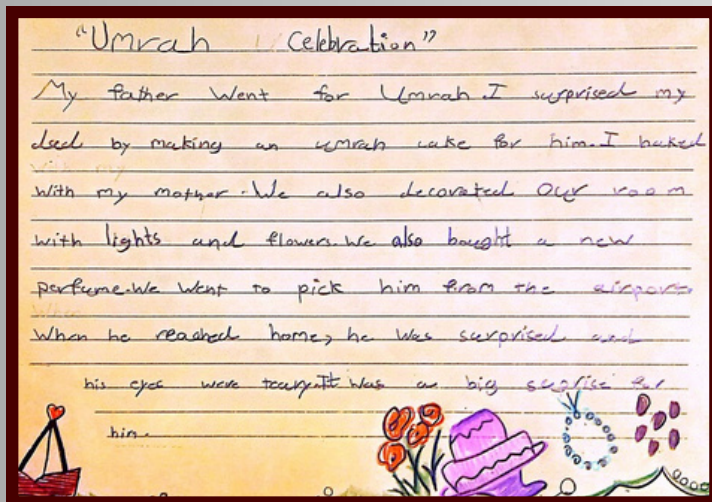 "Umrah Celebration"
My father Went for Umrah. I surprised my
dad by making an umrah cake for him. I baked
with my mother. We also decorated Our room
with lights and flowers. We also bought a new
perfume. We Went to pick him from the airport
When he reached home, he Was surprised and
his eyes were teary. It Was a big suprise for
him.